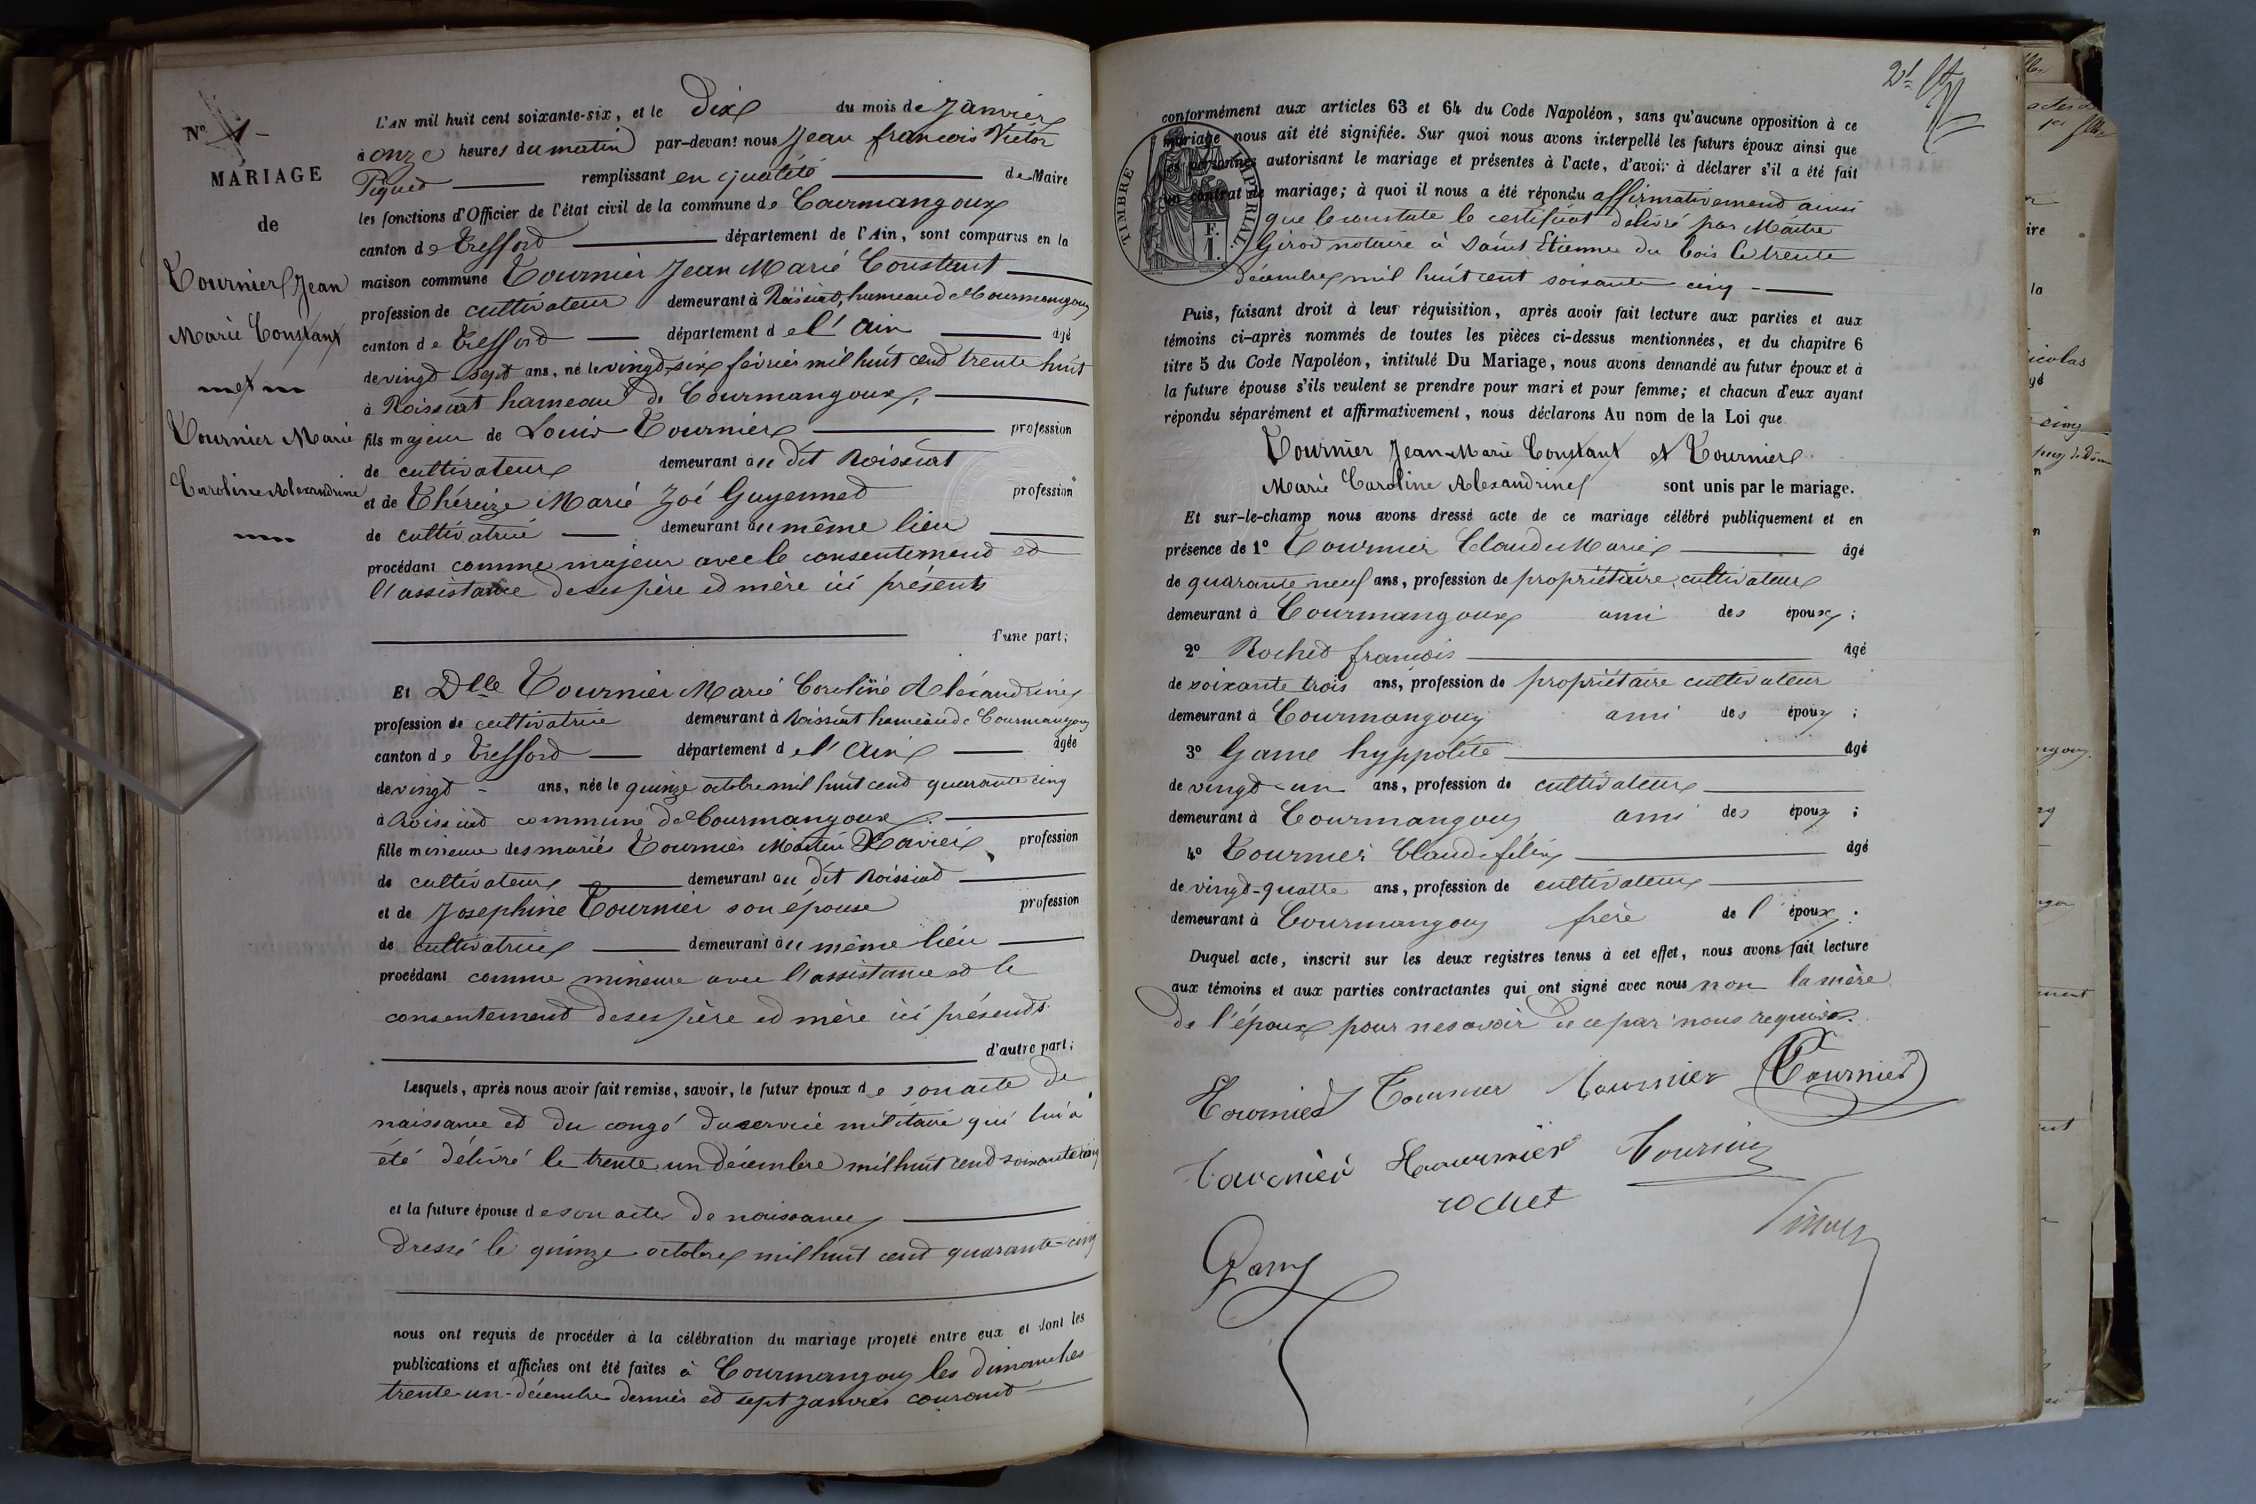 N° 1
MARIAGE
de
Tournier Jean
Marie Constant
et
Tournier Marie
Caroline Alexandrine
L'AN mil huit cent soixante-six, et le Dix du mois de Janvier
à onze heures du matin par-devant nous Jean francois Victor
Piqued remplissant en qualité de Maire
les fonctions d'Officier de l'état civil de la commune de Courmangoux
canton de Treffort département de l'Ain, sont comparus en la
maison commune Tournier Jean Marie Constant
profession de cultivateur demeurant à Roissiat, hameau de Courmangoux
canton de Treffort département de l'Ain âgé
de vingt-sept ans, né le vingt-six février mil huit cent trente huit
à Roissiat hameau de Courmangoux,
fils majeur de Louis Tournier profession
de cultivateur demeurant au dit Roissiat
et de Théreize Marie Zoé Guyennet profession
de cultivatrice demeurant au même lieu
procédant comme majeur avec le consentement et
l'assistance de ses père et mère ici présents
d'une part;
Et Dlle Tournier Marie Caroline Alexandrine
profession de cultivatrice demeurant à Roissiat hameau de Courmangoux
canton de Treffort département de l'Ain âgée
de vingt ans, née le quinze octobre mil huit cent quarante cinq
à Roissiat commune de Courmangoux.
fille mineure des mariés Tournier Martin Xavier profession
de cultivateur demeurant au dit Roissiat
et de Josephine Tournier son épouse profession
de cultivatrice demeurant au même lieu
procédant comme mineure avec l'assistance et le
consentement de ses père et mère ici présents
d'autre part;
Lesquels, après nous avoir fait remise, savoir, le futur époux de son acte de
naissance et du congé du service militaire qui lui a
été délivré le trente un décembre mil huit cent soixante cinq
et la future épouse de son acte de naissance
dressé le quinze octobre mil huit cent quarante-cinq
nous ont requis de procéder à la célébration du mariage projeté entre eux et dont les
publications et affiches ont été faites à Courmangoux les dimanches
trente-un-décembre dernier et sept janvier courant
conformément aux articles 63 et 64 du Code Napoléon, sans qu'aucune opposition à ce
mariage nous ait été signifiée. Sur quoi nous avons interpellé les futurs époux ainsi que
les personnes autorisant le mariage et présentes à l'acte, d'avoir à déclarer s'il a été fait
un contrat de mariage; à quoi il nous a été répondu affirmativement ainsi
que le constate le certificat délivré par Maître
Girod notaire à Saint Etienne du bois le trente
décembre mil huit cent soixante cinq
TIMBRE IMPÉRIAL.
F.
1.
Puis, faisant droit à leur réquisition, après avoir fait lecture aux parties et aux
témoins ci-après nommés de toutes les pièces ci-dessus mentionnées, et du chapitre 6
titre 5 du Code Napoléon, intitulé Du Mariage, nous avons demandé au futur époux et à
la future épouse s'ils veulent se prendre pour mari et pour femme; et chacun d'eux ayant
répondu séparément et affirmativement, nous déclarons Au nom de la Loi que
Tournier Jean-Marie Constant et Tournier
Marie Caroline Alexandrine sont unis par le mariage.
Et sur-le-champ nous avons dressé acte de ce mariage célébré publiquement et en
présence de 1° Tournier Claude Marie âgé
de quarante neuf ans, profession de propriétaire cultivateur
demeurant à Courmangoux ami des époux;
2° Rochet francois âgé
de soixante trois ans, profession de propriétaire cultivateur
demeurant à Courmangoux ami des époux;
3° Game hyppolite âgé
de vingt-un ans, profession de cultivateur
demeurant à Courmangoux ami des époux;
4° Tournier Claude félix âgé
de vingt-quatre ans, profession de cultivateur
demeurant à Courmangoux frère de l'époux.
Duquel acte, inscrit sur les deux registres tenus à cet effet, nous avons fait lecture
aux témoins et aux parties contractantes qui ont signé avec nous non la mère
de l'époux pour ne savoir de ce par nous requise.
Tournier Tournier Tournier Tournier
Tournier Tournier Tournier
rochet
Game